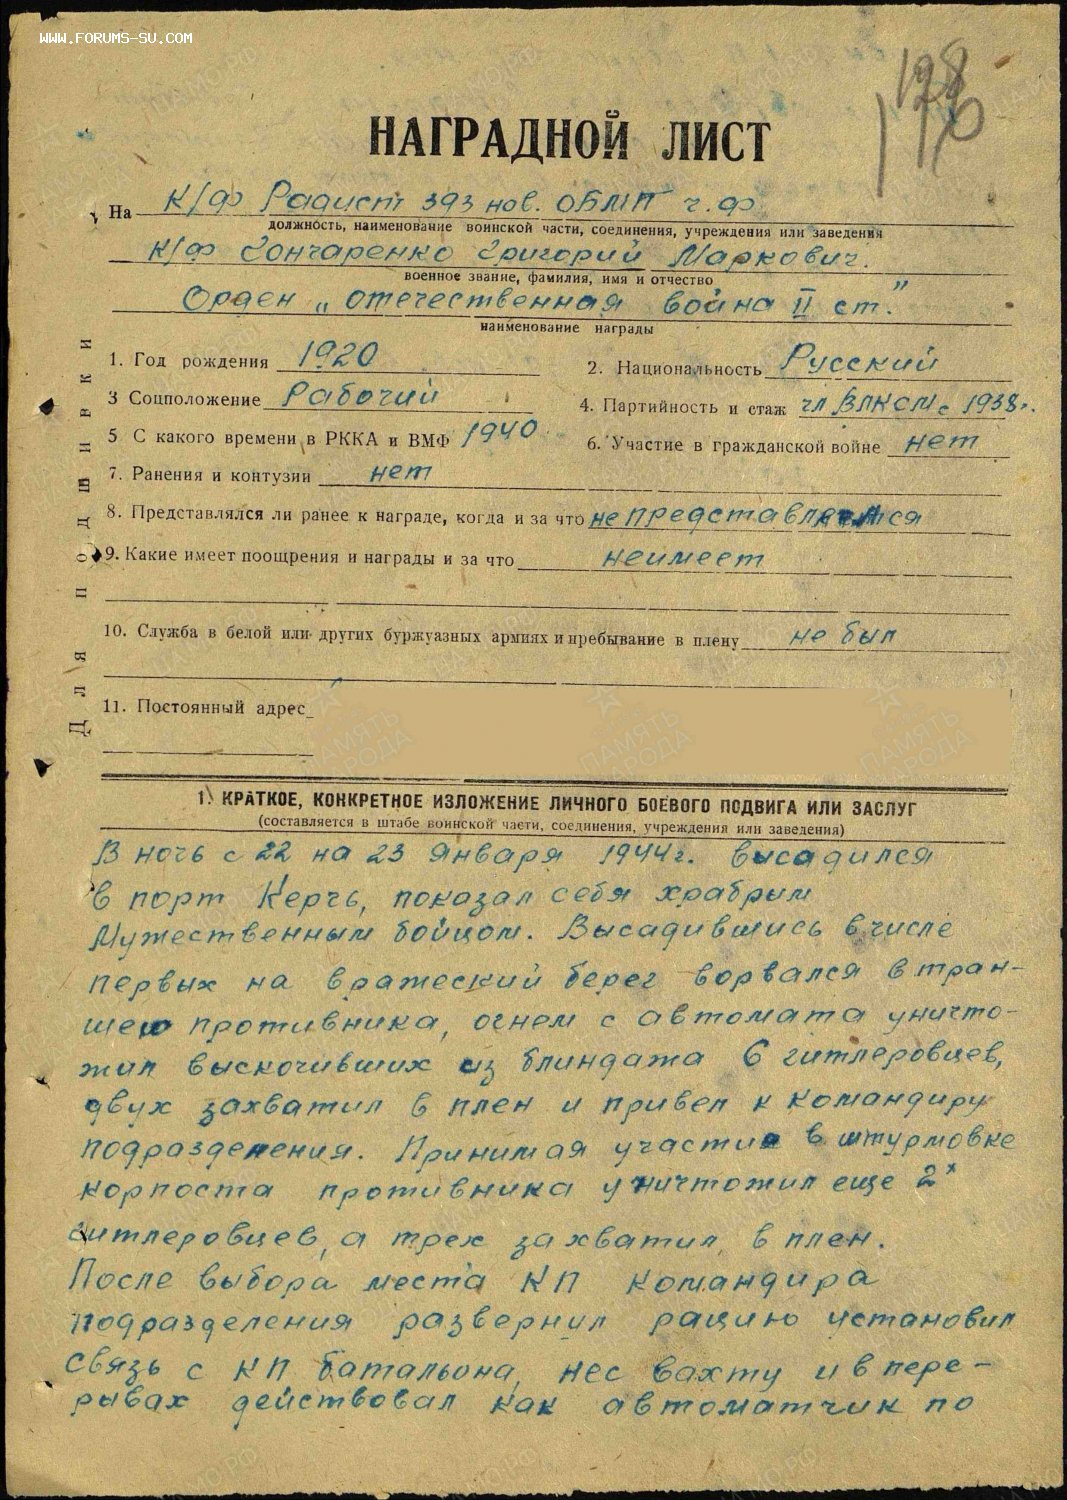 WWW.FORUMS-SU.COM
198
НАГРАДНОЙ ЛИСТ
На К/Ф Радист 393 нов. ОБМП ч.ф
должность, наименование воинской части, соединения, учреждения или заведения
К/Ф Гончаренко Григорий Маркович.
военное звание, фамилия, имя и отчество
Орден „отечественная война II ст."
наименование награды
1. Год рождения 1920
2. Национальность Русский
3 Соцположение Рабочий
4. Партийность и стаж чл ВЛКСМ с 1938г.
5 С какого времени в РККА и ВМФ 1940
6. Участие в гражданской войне нет
7. Ранения и контузии нет
8. Представлялся ли ранее к награде, когда и за что не представлялся
9. Какие имеет поощрения и награды и за что неимеет
10. Служба в белой или других буржуазных армиях и пребывание в плену не был
11. Постоянный адрес
Для подшивки
1. КРАТКОЕ, КОНКРЕТНОЕ ИЗЛОЖЕНИЕ ЛИЧНОГО БОЕВОГО ПОДВИГА ИЛИ ЗАСЛУГ
(составляется в штабе воинской части, соединения, учреждения или заведения)
В ночь с 22 на 23 января 1944г. высадился
в порт Керчь, показал себя храбрым
Мужественным бойцом. Высадившись в числе
первых на вражеский берег ворвался в тран-
шею противника, огнем с автомата уничто-
жил выскочивших из блиндажа 6 гитлеровцев,
двух захватил в плен и привел к командиру
подразделения. Принимая участие в штурмовке
корпоста противника уничтожил еще 2х
гитлеровцев, а трех захватил в плен.
После выбора места КП командира
подразделения развернул рацию установил
связь с КП батальона, нес вахту и в пере-
рывах действовал как автоматчик по
ПАМЯТЬ НАРОДА
ПАМЯТЬ НАРОДА